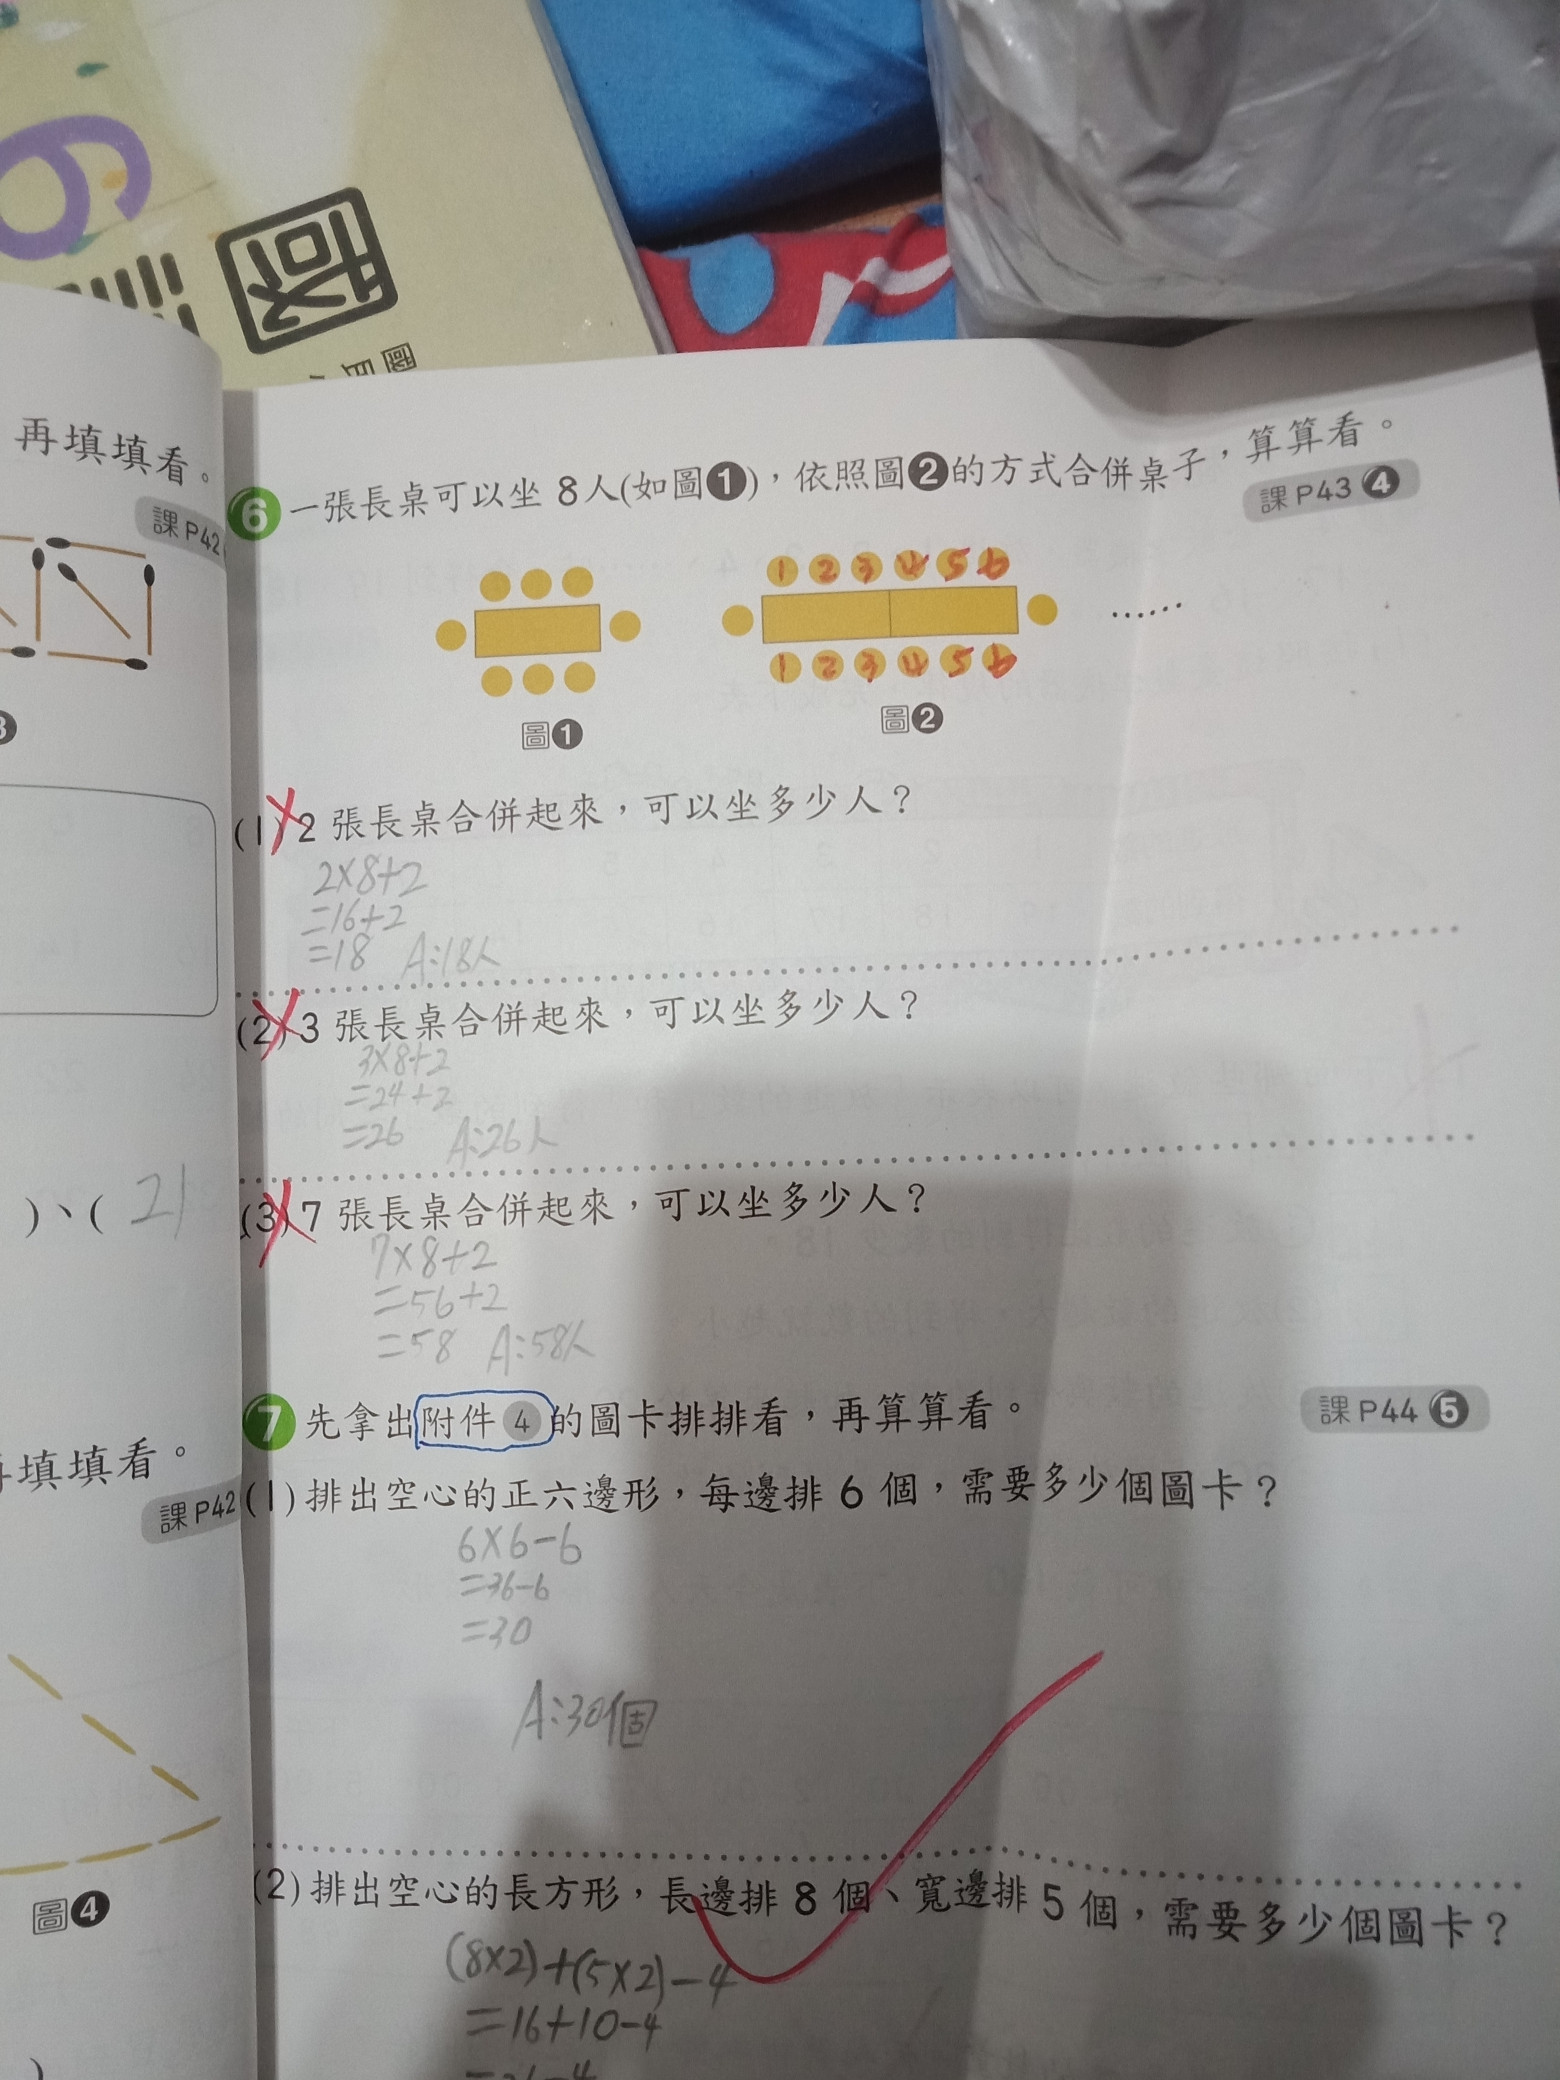 再填填看。
課P42
6 一張長桌可以坐 8人(如圖1),依照圖2的方式合併桌子,算算看。
課P43 4
1 2 3 4 5 6
……
1 2 3 4 5 6
圖1
圖2
(1) 2 張長桌合併起來,可以坐多少人?
2×8+2
=16+2
=18 A:18人
(2) 3 張長桌合併起來,可以坐多少人?
3×8+2
=24+2
=26 A:26人
)、( 21
(3) 7 張長桌合併起來,可以坐多少人?
7×8+2
=56+2
=58 A:58人
7 先拿出附件 4 的圖卡排排看,再算算看。
課P44 5
填填看。
課P42
(1)排出空心的正六邊形,每邊排 6 個,需要多少個圖卡?
6×6-6
=36-6
=30
A:30個
圖4
(2)排出空心的長方形,長邊排 8 個、寬邊排 5 個,需要多少個圖卡?
(8×2)+(5×2)-4
=16+10-4